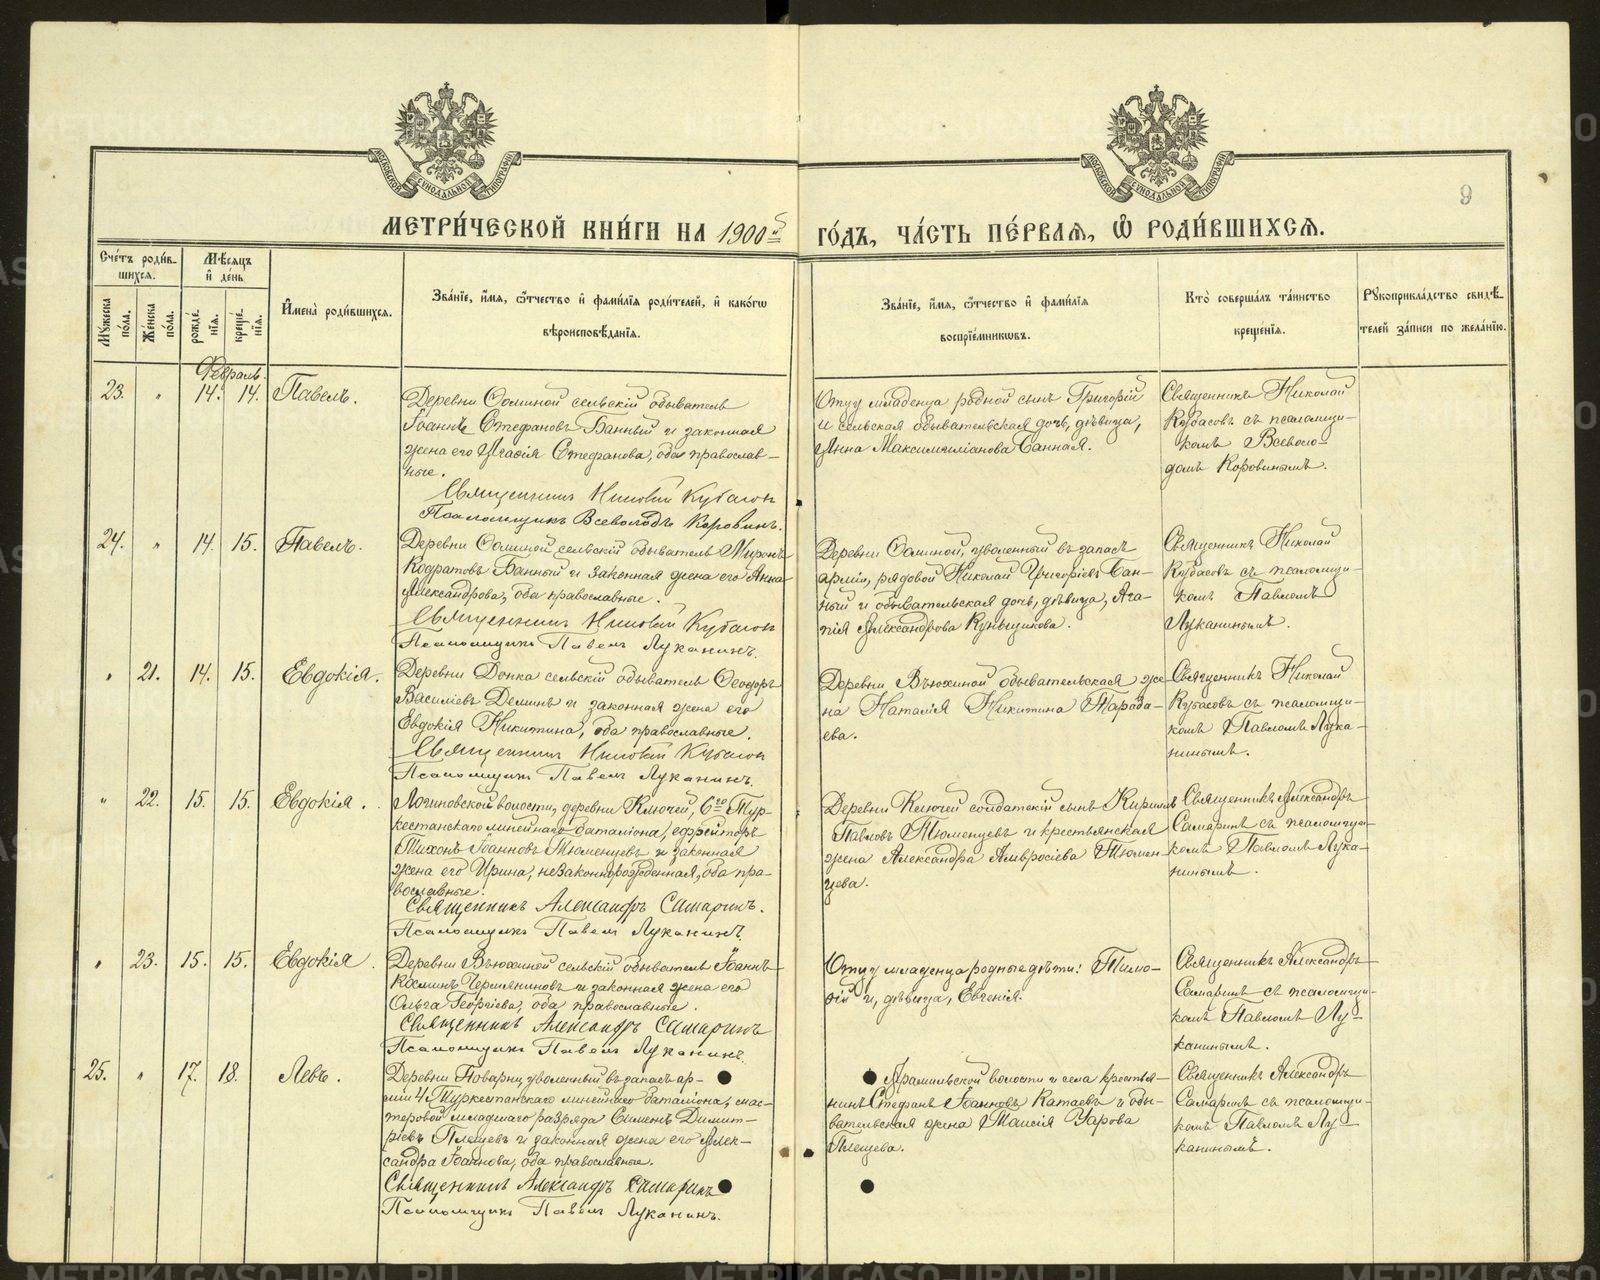 МЕТРИ́ЧЕСКОЙ КНИ́ГИ НА 1900й ГО́ДЪ, ЧА́СТЬ ПЕ́РВАЯ, Ѽ РОДИ́ВШИХСЯ.
9
Сче́тъ роди́в-
шихся.
Му́жеска по́ла.
Же́нска по́ла.
Мѣ́сяцъ
и҆ де́нь
рожде́нія.
креще́нія.
И҆мена̀ роди́вшихся.
Зва́нїе, и҆́мя, ѻ҆́тчество и҆ фами́лїя роди́телей, и҆ како́гѡ
вѣроисповѣ́данїя.
Зва́нїе, и҆́мя, ѻ҆́тчество и҆ фами́лїя
воспрїе́мникѡвъ.
Кто̀ соверша́лъ та́инство
креще́нїя.
Рꙋкоприкла́дство свидѣ́-
телей за́писи по жела́нїю.
Февраль.
23. „ 14. 14. Павелъ.
Деревни Соминой сельскій обыватель
Іоаннъ Стефановъ Банный и законная
жена его Агафія Стефанова, оба православ-
ные.
Священникъ Николай Кубасовъ
Псаломщикъ Всеволодъ Коровинъ.
Отцу младенца родной сынъ Григорій
и сельская обывательская дочь, дѣвица,
Анна Максимиліанова Банная.
Священникъ Николай
Кубасовъ съ псаломщи-
комъ Всеволо-
домъ Коровинымъ.
24. „ 14. 15. Павелъ.
Деревни Соминой сельскій обыватель Миронъ
Кодратовъ Банный и законная жена его Анна
Александрова, оба православные.
Священникъ Николай Кубасовъ
Псаломщикъ Павелъ Луканинъ.
Деревни Соминой, уволенный въ запасъ
арміи, рядовой Николай Григоріевъ Бан-
ный и обывательская дочь, дѣвица, Ага-
пія Александрова Куньщикова.
Священникъ Николай
Кубасовъ съ псаломщи-
комъ Павломъ
Луканинымъ.
„ 21. 14. 15. Евдокія.
Деревни Донка сельскій обыватель Ѳеодоръ
Василіевъ Деминъ и законная жена его
Евдокія Никитина, оба православные.
Священникъ Николай Кубасовъ
Псаломщикъ Павелъ Луканинъ.
Деревни Вьюхиной обывательская же-
на Наталія Никитина Тарада-
ева.
Священникъ Николай
Кубасовъ съ псаломщи-
комъ Павломъ Лука-
нинымъ.
„ 22. 15. 15. Евдокія.
Логиновской волости, деревни Ключей, 6го Тур-
кестанскаго линейнаго баталіона, ефрейторъ
Тихонъ Іоанновъ Тюменцевъ и законная
жена его Ирина, незаконнорожденная, оба пра-
вославные.
Священникъ Александръ Самаринъ.
Псаломщикъ Павелъ Луканинъ.
Деревни Ключей солдатскій сынъ Кириллъ
Павловъ Тюменцевъ и крестьянская
жена Александра Амвросіева Тюмен-
цева.
Священникъ Александръ
Самаринъ съ псаломщи-
комъ Павломъ Лука-
нинымъ.
„ 23. 15. 15. Евдокія.
Деревни Вьюхиной сельскій обыватель Іоаннъ
Косминъ Чермяниновъ и законная жена его
Ольга Георгіева, оба православные.
Священникъ Александръ Самаринъ
Псаломщикъ Павелъ Луканинъ.
Отцу младенца родные дѣти: Тимо-
ѳій и, дѣвица, Евгенія.
Священникъ Александръ
Самаринъ съ псаломщи-
комъ Павломъ Лу-
канинымъ.
25. „ 17. 18. Левъ.
Деревни Поварни уволенный въ запасъ ар-
міи 4 Туркестанскаго линейнаго баталіона, мас-
теровой младшаго разряда Симеонъ Димит-
ріевъ Плещевъ и законная жена его Алек-
сандра Іоаннова, оба православные.
Священникъ Александръ Самаринъ
Псаломщикъ Павелъ Луканинъ.
Арамильской волости и села крестья-
нинъ Стефанъ Іоанновъ Катаевъ и обы-
вательская жена Таисія Уарова
Плещева.
Священникъ Александръ
Самаринъ съ псаломщи-
комъ Павломъ Лу-
канинымъ.
METRIKI.GASO-URAL.RU